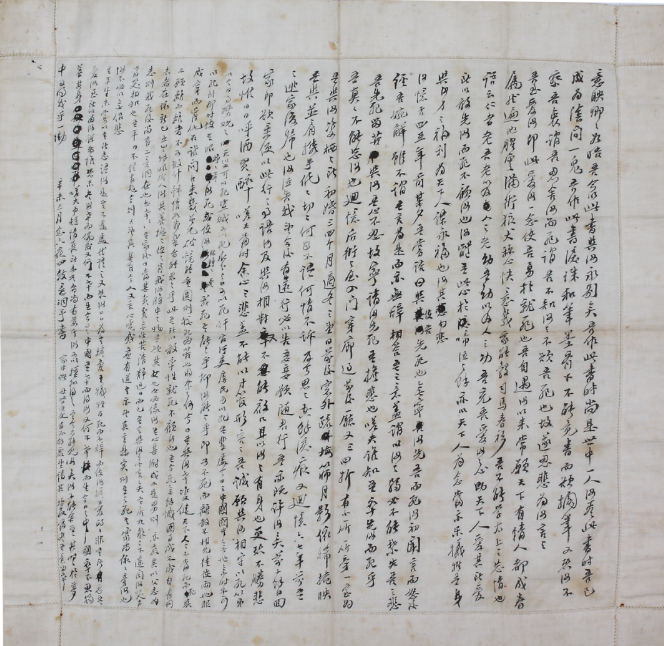 意映卿卿如晤吾今以此書與汝永別矣吾作此書時尚是世中一人汝看此書時吾已
成為陰間一鬼吾作此書淚珠和筆墨齊下不能竟書而欲擱筆又恐汝不
察吾衷謂吾忍舍汝而死謂吾不知汝之不欲吾死也故遂忍悲為汝言之
吾至愛汝即此愛汝一念使吾勇於就死也吾自遇汝以來常願天下有情人都成眷
屬然遍地腥雲滿街狼犬稱心快意幾家能彀司馬春衫吾不能學太上之忘情也
語云仁者老吾老以及人之老幼吾幼以及人之幼吾充吾愛汝之心助天下人愛其所愛
所以敢先汝而死不顧汝也汝體吾此心於啼泣之餘亦以天下人為念當亦樂犧牲吾身
與汝身之福利為天下人謀永福也汝其勿悲
汝憶否四五年前某夕吾嘗語曰與使吾先死也無寧汝先吾而死汝初聞言而怒後
經吾婉解雖不謂吾言為是而亦無辭相答吾之意蓋謂以汝之弱必不能禁失吾之悲
吾先死留苦與汝吾心不忍故寧請汝先死吾擔悲也嗟夫誰知吾卒先汝而死乎
吾真真不能忘汝也迴憶后街之屋入門穿廊過前後廳又三四折有小廳廳旁一室為
吾與汝雙栖之所初婚三四個月適冬之望日前後窗外疏梅篩月影依稀掩映
吾與汝並肩攜手低低切切何事不語何情不訴及今思之空餘淚痕又迴憶六七年前吾
之逃家復歸也汝泣告我望今後有遠行必以告妾妾願隨君行吾亦既許汝矣前十餘日回
家即欲乘便以此行之事語汝及與汝相對又不能啟口且以汝之有身也更恐不勝悲
故惟日日呼酒買醉嗟夫當時余心之悲蓋不能以寸管形容之吾誠願與汝相守以死第以
今日事勢觀之天災可以死盜賊可以死瓜分之日可以死奸官污吏虐民可以死吾輩處今日之中國國中無地無時不可
以死到那時使吾眼睜睜看汝死或使汝眼睜睜看我死吾能之乎抑汝能之乎即可不死而離散不相見徒使兩地眼
成穿而骨化石試問古來幾曾見破鏡能重圓則較死為苦也將奈之何今日吾與汝幸雙健天下人之不當死而死與不
願離而離者不可數計鍾情如我輩者能忍之乎此吾所以敢率性就死不顧汝也吾今死無餘憾國事成不成自有同
志者在依新已五歲轉眼成人汝其善撫之使之肖我汝腹中之物吾疑其女也女必像汝吾心甚慰或又是男則亦教其以父志為
志則我死後尚有二意洞在也甚幸甚幸吾家後日當甚貧貧無所苦清靜過日而已吾今與汝無言矣吾居九泉之下遙聞汝哭聲
當哭相和也吾平日不信有鬼今則又望其真有今人又言心電感應有道吾亦望其言是實則吾之死吾靈尚依依旁汝也
汝不必以無侶悲
吾平生未嘗以吾所志語汝是吾不是處然語之又恐汝日日為吾擔憂吾犧牲百死而不辭而使汝擔憂的的非吾所忍吾
愛汝至所以為汝謀者惟恐未盡汝幸而偶我又何不幸而生今日之中國吾幸而得汝又何不幸而生今日之中國卒不忍獨
善其身嗟夫巾短情長所未盡者尚有萬千汝可以模擬得之吾今不能見汝矣汝不能舍吾其時時於夢
中尋我乎一慟 辛未三月念六夜四鼓意洞手書
家中諸母皆通文有不解處望請其指教當盡吾意為幸